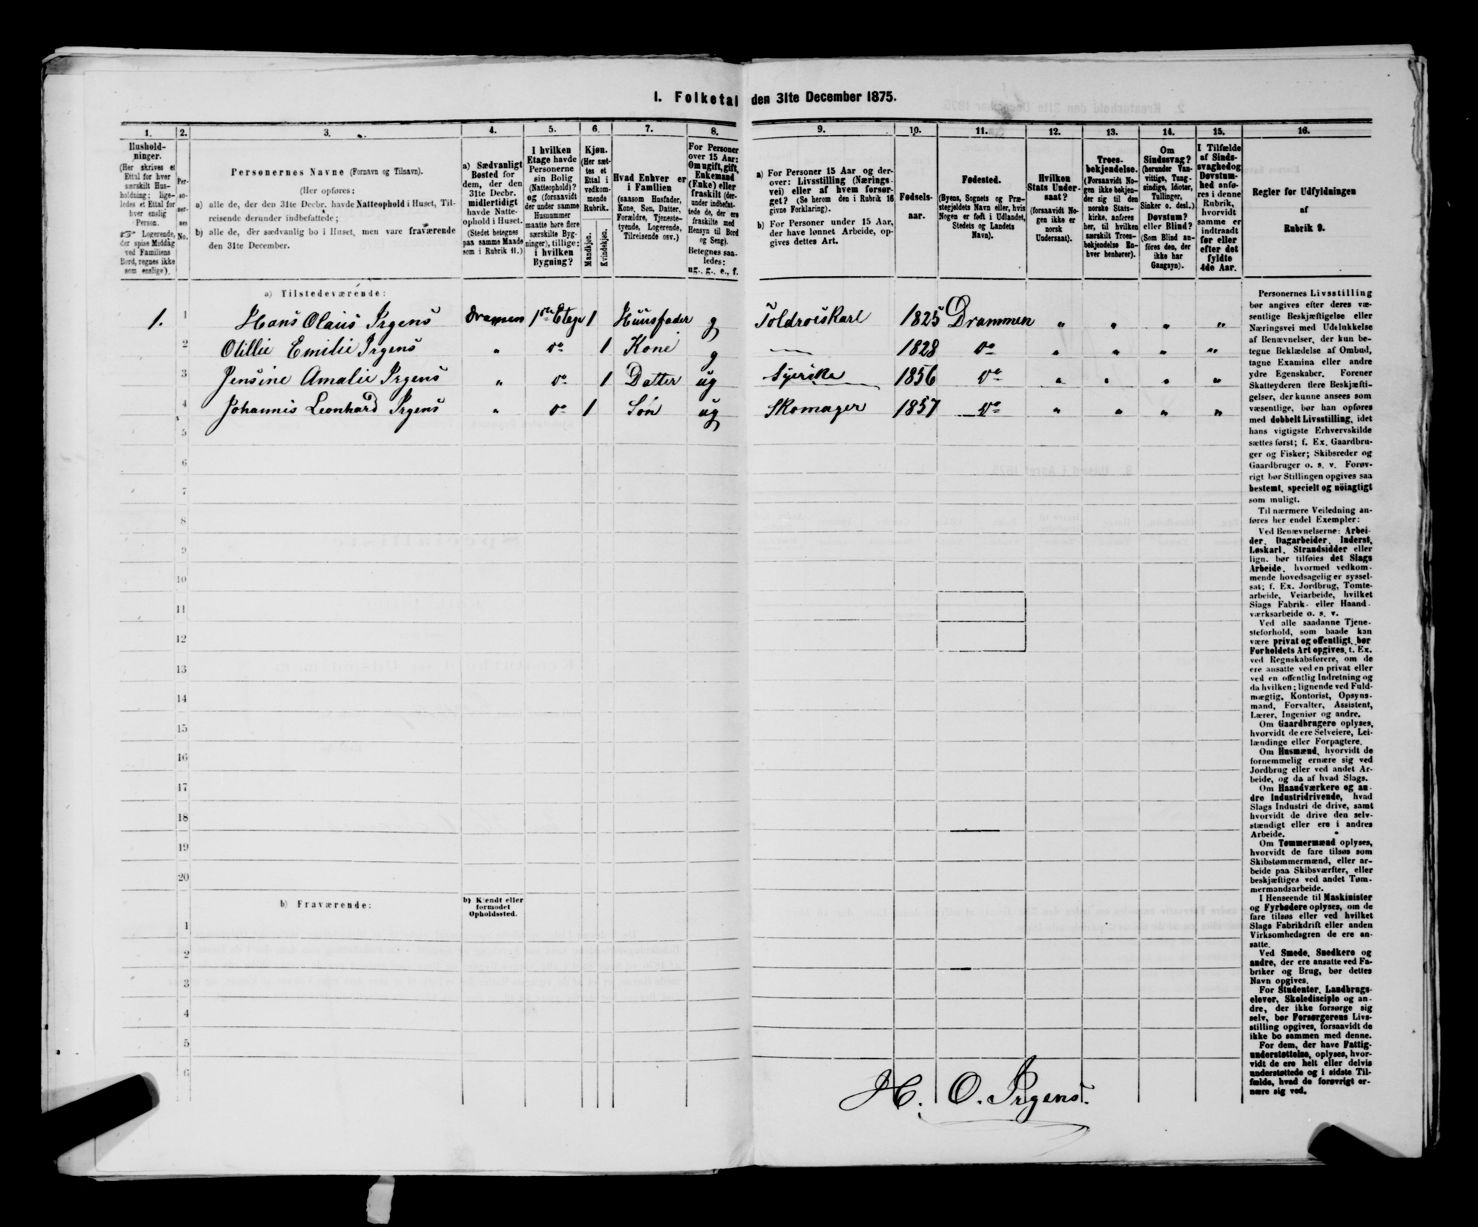 1. Folketal den 31te December 1875.
1. 2. 3. 4. 5. 6. 7. 8. 9. 10. 11. 12. 13. 14. 15. 16.
Hushold-
ninger.
(Her skrives et
Ettal for hver
særskilt Hus-
holdning; lige-
ledes et Ettal for
hver enslig
Person.
Logerende,
der spise Middag
ved Familiens
Bord, regnes ikke
som enslige).
Per-
so-
ner-
nes
No.
Personernes Navne (Fornavn og Tilnavn).
(Her opføres:
a) alle de, der den 31te Decbr. havde Natteophold i Huset, Til-
reisende derunder indbefattede;
b) alle de, der sædvanlig bo i Huset, men vare fraværende
den 31te December.
a) Sædvanligt
Bosted for
dem, der den
31te Decbr.
midlertidigt
havde Natte-
ophold i Huset.
(Stedet betegnes
paa samme Maade
som i Rubrik 11.)
I hvilken
Etage havde
Personerne
sin Bolig
(Natteophold)?
og (forsaavidt
der under samme
Husnummer
maatte høre flere
særskilte Byg-
ninger), tillige:
i hvilken
Bygning?
Kjøn.
(Her sæt-
tes et
Ettal i
vedkom-
mende
Rubrik.
Mandkjøn.
Kvindekjøn.
Hvad Enhver er
i Familien
(saasom Husfader,
Kone, Søn, Datter,
Forældre, Tjeneste-
tyende, Logerende,
Tilreisende osv.)
For Personer
over 15 Aar:
Om ugift, gift,
Enkemand
(Enke) eller
fraskilt (der-
under indbefat-
tede de, der ere
fraskilte med
Hensyn til Bord
og Seng).
Betegnes saa-
ledes:
ug., g., e., f.
a) For Personer 15 Aar og der-
over: Livsstilling (Nærings-
vei) eller af hvem forsør-
get? (Se herom den i Rubrik 16
givne Forklaring).
b) For Personer under 15 Aar,
der have lønnet Arbeide, op-
gives dettes Art.
Fødsels-
aar.
Fødested.
(Byens, Sognets og Præ-
stegjeldets Navn eller, hvis
Nogen er født i Udlandet,
Stedets og Landets
Navn).
Hvilken
Stats Under-
saat?
(forsaavidt No-
gen ikke er
norsk
Undersaat).
Troes-
bekjendelse.
(Forsaavidt No-
gen ikke bekjen-
der sig til den
norske Stats-
kirke, anføres
her, til hvilken
særskilt Troes-
bekjendelse En-
hver henhører).
Om
Sindssvag?
(herunder Van-
vittige, Tung-
sindige, Idioter,
Tullinger,
Sinker o. desl.).
Døvstum?
eller Blind?
(Som Blind an-
føres den, der
ikke har
Gangsyn).
I Tilfælde
af Sinds-
svaghed og
Døvstum-
hed anfø-
res i denne
Rubrik,
hvorvidt
samme er
indtraadt
før eller
efter det
fyldte
4de Aar.
Regler for Udfyldningen
af
Rubrik 9.
a) Tilstedeværende:
1. 1 Hans Olaus Irgens Dramen 1ste Etage 1 Huusfader g Toldroiskarl 1825 Drammen „ „ „ „
2 Otillie Emilie Irgens „ do 1 Kone g — 1828 do „ „ „ „
3 Jensine Amalie Irgens „ do 1 Datter ug Syerske 1856 do „ „ „ „
4 Johannis Leonhard Irgens „ do 1 Søn ug Skomager 1857 do „ „ „ „
5
6
7
8
9
10
11
12
13
14
15
16
17
18
19
20
b) Fraværende:
b) Kjendt eller
formodet
Opholdssted.
1
2
3
4
5
6
H. O. Irgens.
Personernes Livsstilling
bør angives efter deres væ-
sentlige Beskjæftigelse eller
Næringsvei med Udelukkelse
af Benævnelser, der kun be-
tegne Beklædelse af Ombud,
tagne Examina eller andre
ydre Egenskaber. Forener
Skatteyderen flere Beskjæfti-
gelser, der kunne ansees som
væsentlige, bør han opføres
med dobbelt Livsstilling, idet
hans vigtigste Erhvervskilde
sættes først; f. Ex. Gaardbru-
ger og Fisker; Skibsreder og
Gaardbruger o. s. v. Forøv-
rigt bør Stillingen opgives saa
bestemt, specielt og nøiagtigt
som muligt.
Til nærmere Veiledning an-
føres her endel Exempler:
Ved Benævnelserne: Arbei-
der, Dagarbeider, Inderst,
Løskarl, Strandsidder eller
lign. bør tilføies det Slags
Arbeide, hvormed vedkom-
mende hovedsagelig er syssel-
sat; f. Ex. Jordbrug, Tomte-
arbeide, Veiarbeide, hvilket
Slags Fabrik- eller Haand-
værksarbeide o. s. v.
Ved alle saadanne Tjene-
steforhold, som baade kan
være privat og offentligt, bør
Forholdets Art opgives, f. Ex.
ved Regnskabsførere, om de
ere ansatte ved en privat eller
ved en offentlig Indretning og
da hvilken; lignende ved Fuld-
mægtig, Kontorist, Opsyns-
mand, Forvalter, Assistent,
Lærer, Ingeniør og andre.
Om Gaardbrugere oplyses,
hvorvidt de ere Selveiere, Lei-
lændinge eller Forpagtere.
Om Husmænd, hvorvidt de
fornemmelig ernære sig ved
Jordbrug eller ved andet Ar-
beide, og da af hvad Slags.
Om Haandværkere og an-
dre Industridrivende, hvad
Slags Industri de drive, samt
hvorvidt de drive den selv-
stændigt eller ere i andres
Arbeide.
Om Tømmermænd oplyses,
hvorvidt de fare tilsøs som
Skibstømmermænd, eller ar-
beide paa Skibsværfter, eller
beskjæftiges ved andet Tøm-
mermandsarbeide.
I Henseende til Maskinister
og Fyrbødere oplyses, om de
fare tilsøs eller ved hvilket
Slags Fabrikdrift eller anden
Virksomhedsgren de ere an-
satte.
Ved Smede, Snedkere og
andre, der ere ansatte ved Fa-
briker og Brug, bør dettes
Navn opgives.
For Studenter, Landbrugs-
elever, Skoledisciple og an-
dre, der ikke forsørge sig
selv, bør Forsørgerens Livs-
stilling opgives, forsaavidt de
ikke bo sammen med denne.
For dem, der have Fattig-
understøttelse, oplyses, hvor-
vidt de ere helt eller delvis
understøttede og i sidste Til-
fælde, hvad de forøvrigt er-
nære sig ved.